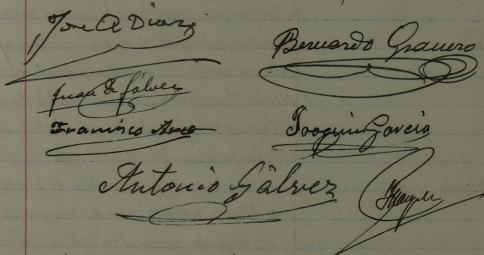 Jose A Diaz
Bernardo Granero
Juan de Gálvez
Francisco
Joaquin Garcia
Antonio Gálvez